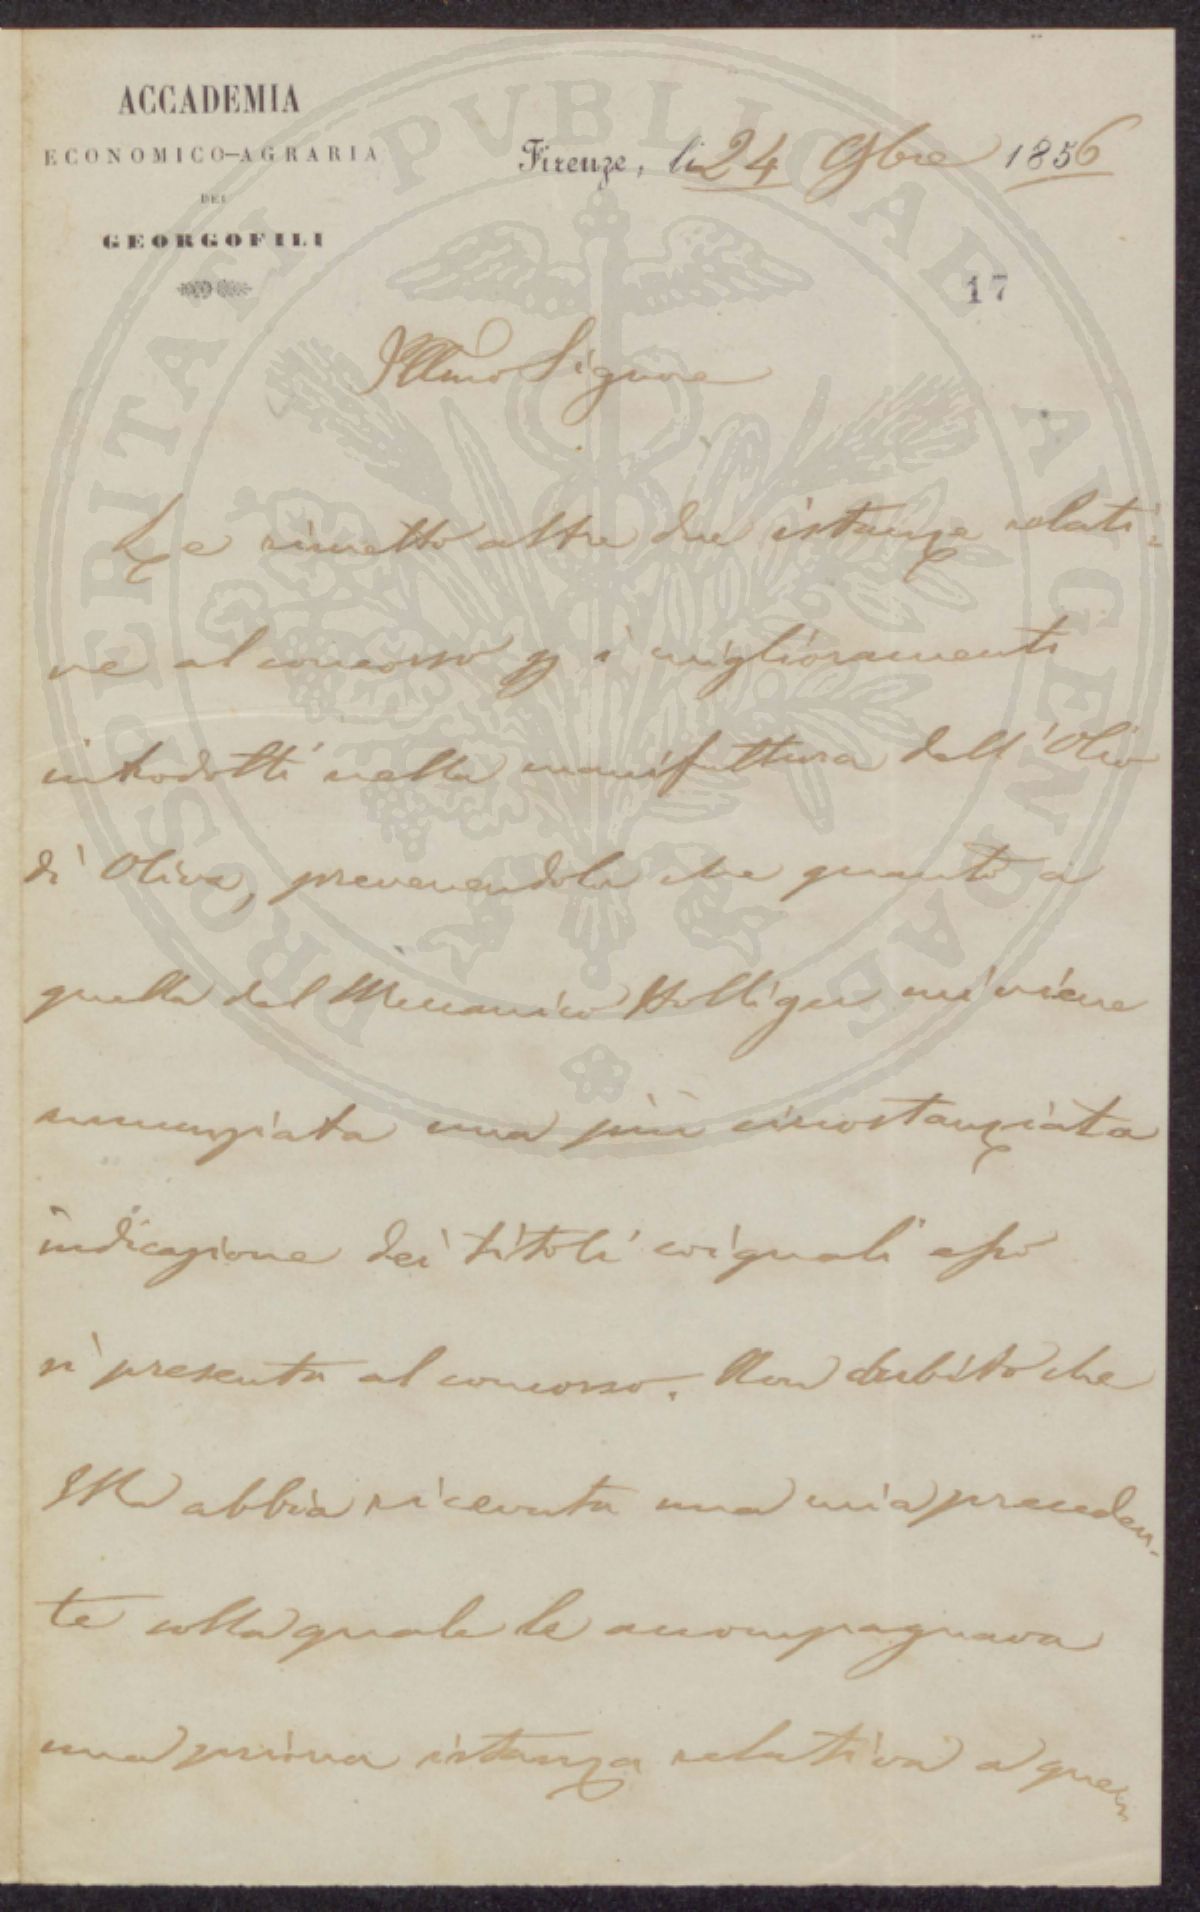 ACCADEMIA
ECONOMICO-AGRARIA
DEI
GEORGOFILI
Firenze, li 24 9bre 1856
17
Illmo Signore
Le rimetto altre due istanze relati=
ve al concorso p i miglioramenti
introdotti nella manifattura dell'Olio
di Oliva, prevenendola che quanto a
quella del Meccanico Holliger mi viene
annunziata una più circostanziata
indicazione dei titoli coi quali esso
si presenta al concorso. Non dubito che
Ella abbia ricevuta una mia preceden-
te colla quale le accompagnava
una prima istanza relativa a ques
PROSPERITATI PVBLICAE AVGENDAE